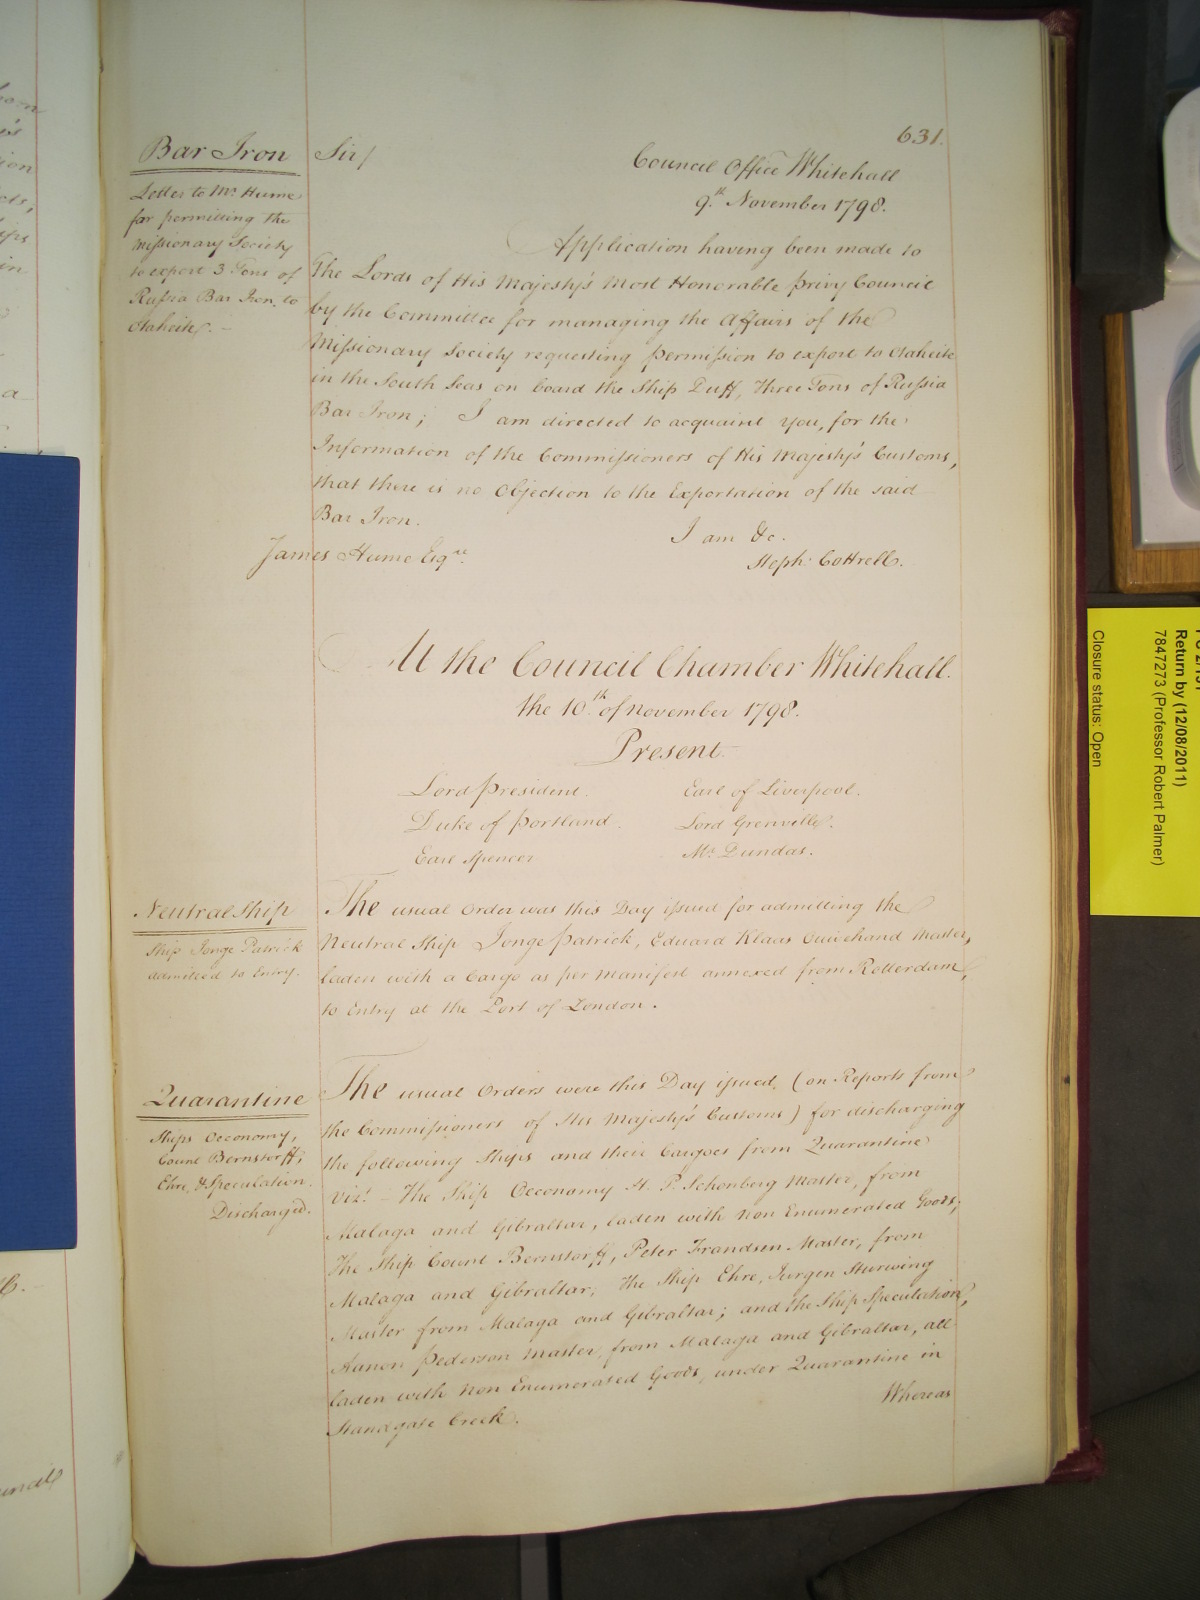 631.
Bar Iron
Letter to Mr. Hume
for permitting the
Missionary Society
to export 3 Tons of
Russia Bar Iron to
Otaheite. —
Sir/
Council Office Whitehall
9.th November 1798.
Application having been made to
The Lords of His Majesty's Most Honorable Privy Council
by the Committee for managing the Affairs of the
Missionary Society requesting permission to export to Otaheite
in the South Seas on board the Ship Duff, Three Tons of Russia
Bar Iron; I am directed to acquaint You, for the
Information of the Commissioners of His Majesty's Customs,
that there is no Objection to the Exportation of the said
Bar Iron.
I am &c.
Steph: Cottrell.
James Hume Esqre.
At the Council Chamber Whitehall.
the 10th of November 1798.
Present
Lord President.
Duke of Portland.
Earl Spencer
Earl of Liverpool.
Lord Grenville.
Mr. Dundas.
Neutral Ship
Ship Jonge Patrick
admitted to Entry.
The usual Order was this Day issued for admitting the
Neutral Ship Jonge Patrick, Eduard Klaas Ouwehand Master,
laden with a Cargo as per Manifest annexed from Rotterdam,
to Entry at the Port of London.
Quarantine
Ships Oeconomy,
Count Bernstorff,
Ehre, & Speculation.
Discharged.
The usual Orders were this Day issued, (on Reports from
the Commissioners of His Majesty's Customs) for discharging
the following Ships and their Cargoes from Quarantine
Vizt. — The Ship Oeconomy H. P. Schonberg Master, from
Malaga and Gibraltar, laden with Non Enumerated Goods;
The Ship Count Bernstorff, Peter Frandsen Master, from
Malaga and Gibraltar; The Ship Ehre, Jurgen Sturwing
Master from Malaga and Gibraltar; and the Ship Speculation,
Aanon Pederson Master, from Malaga and Gibraltar, all
laden with Non Enumerated Goods, under Quarantine in
Standgate Creek.
Whereas
Return by (12/08/2011)
7847273 (Professor Robert Palmer)
Closure status: Open